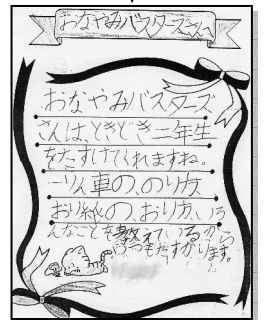 おなやみバスターズさんへ
おなやみバスターズ
さんは、ときどき二年生
をたすけてくれますね。
一りん車の、のり方
おり紙の、おり方、いろ
んなことを教えているから
いつもたすかります。